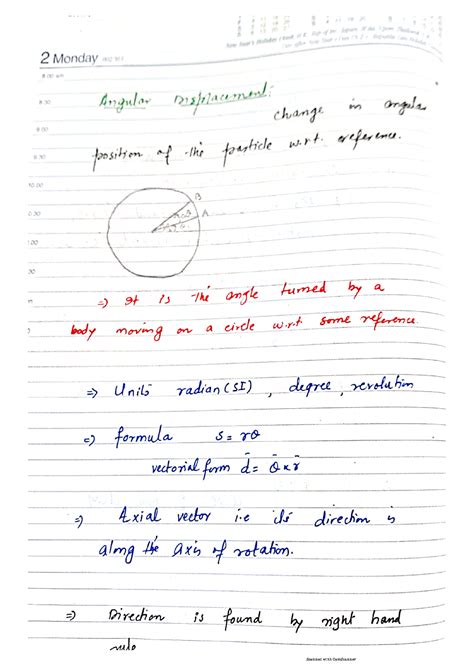 2 Monday
8.00 am
8.30
Angular Displacement:
change in angular
9.00
position of the particle w.r.t. reference.
9.30
10.00
B
A
⇒ It is the angle turned by a
body moving on a circle w.r.t some reference.
⇒ Units radian (SI), degree, revolution
⇒ formula s = rθ
vectorial form d̄ = θ̄ × r̄
⇒ Axial vector i.e its direction is
along the axis of rotation.
⇒ Direction is found by right hand
rule
Scanned with CamScanner